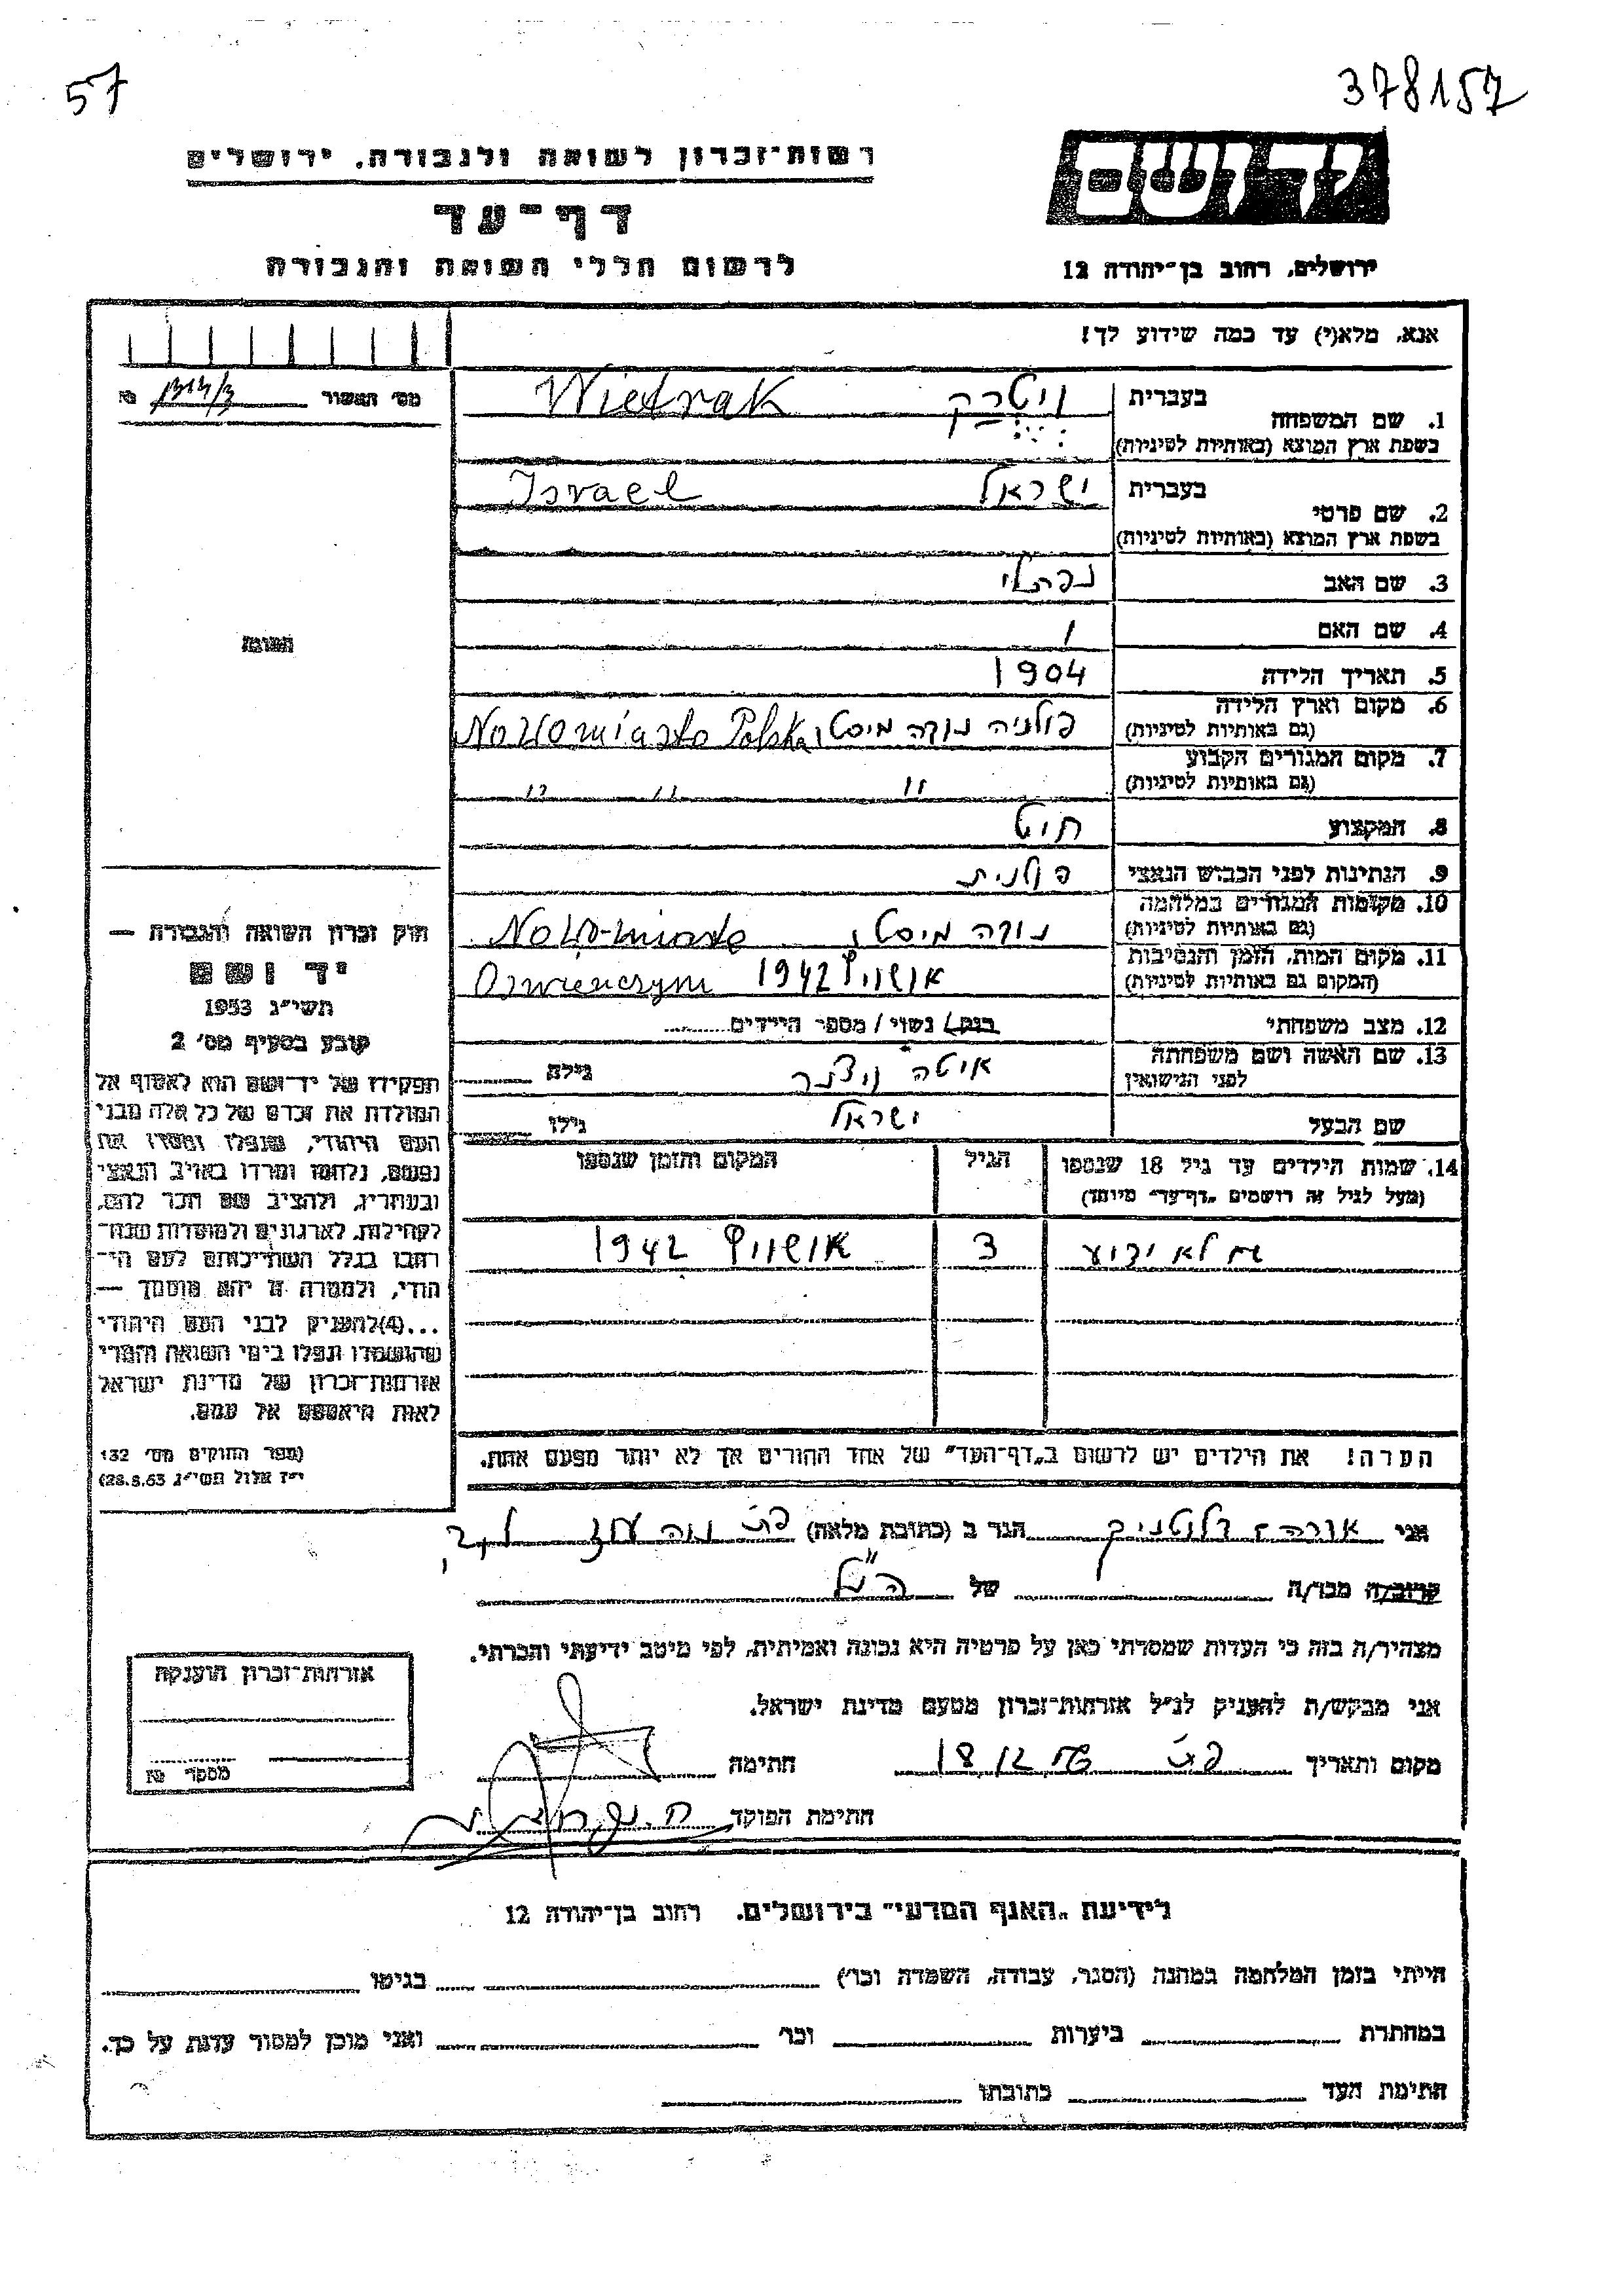 57
378157
רשות-זכרון לשואה ולגבורה. ירושלים
דף-עד
לרשום חללי השואה והגבורה
ירושלים, רחוב בן-יהודה 12
אנא, מלא(י) עד כמה שידוע לך!
מס׳ תאשור
1. שם המשפחה
בעברית ויטרק Wietrak
בשפת ארץ המוצא (באותיות לטיניות)
2. שם פרטי
בעברית ישראל Israel
בשפת ארץ המוצא (באותיות לטיניות)
3. שם האב נפתלי
4. שם האם /
5. תאריך הלידה 1904
6. מקום וארץ הלידה
(גם באותיות לטיניות) פולניה נובה מיסטו Nowomiasto Polska
7. מקום המגורים הקבוע
(גם באותיות לטיניות) " " "
8. המקצוע חיט
9. הנתינות לפני הכבוש הנאצי פולנית
10. מקומות המגורים במלחמה
(גם באותיות לטיניות) נובה מיסטו Nowo-miasto
11. מקום המות, הזמן והנסיבות
(המקום גם באותיות לטיניות) אושויץ 1942
12. מצב משפחתי רווק/ נשוי / מספר הילדים
13. שם האשה ושם משפחתה
לפני הנישואין איטה גילה
שם הבעל ישראל גילו
14. שמות הילדים עד גיל 18 שנספו
(מעל לגיל זה רושמים „דף-עד" מיוחד)
הגיל
המקום והזמן שנספו
שם לא ידוע 3 אושויץ 1942
הערה! את הילדים יש לרשום ב„דף-העד" של אחד ההורים אך לא יותר מפעם אחת.
תמונה
חוק זכרון השואה והגבורה —
יד ושם
תשי״ג 1953
קובע בסעיף מס׳ 2
תפקידו של יד-ושם הוא לאסוף אל
המולדת את זכרם של כל אלה מבני
העם היהודי, שנפלו ומסרו את
נפשם, נלחמו ומרדו באויב הנאצי
ובעוזריו, ולהציב שם וזכר להם,
לקהילות, לארגונים ולמוסדות שנח-
רבו בגלל השתייכותם לעם הי-
הודי, ולמטרה זו יהא מוסמך —
...(4)להעניק לבני העם היהודי
שהושמדו ונפלו בימי השואה והמרי
אזרחות-זכרון של מדינת ישראל
לאות היאספם אל עמם.
(ספר החוקים מס׳ 132
י״ז אלול תשי״ג 28.8.53)
אני הגר ב (כתובת מלאה)
קרוב/ה מכר/ה של הנ״ל
מצהיר/ה בזה כי העדות שמסרתי כאן על פרטיה היא נכונה ואמיתית, לפי מיטב ידיעתי והכרתי.
אני מבקש/ת להעניק לנ״ל אזרחות-זכרון מטעם מדינת ישראל.
מקום ותאריך חתימה
חתימת הפוקד
אזרחות-זכרון הוענקה
מספר
לידיעת „האגף המדעי" בירושלים. רחוב בן-יהודה 12
הייתי בזמן המלחמה במחנה (הסגר, עבודה, השמדה וכו׳) בגיטו
במחתרת ביערות וכו׳ ואני מוכן למסור עדות על כך.
חתימת העד כתובתו